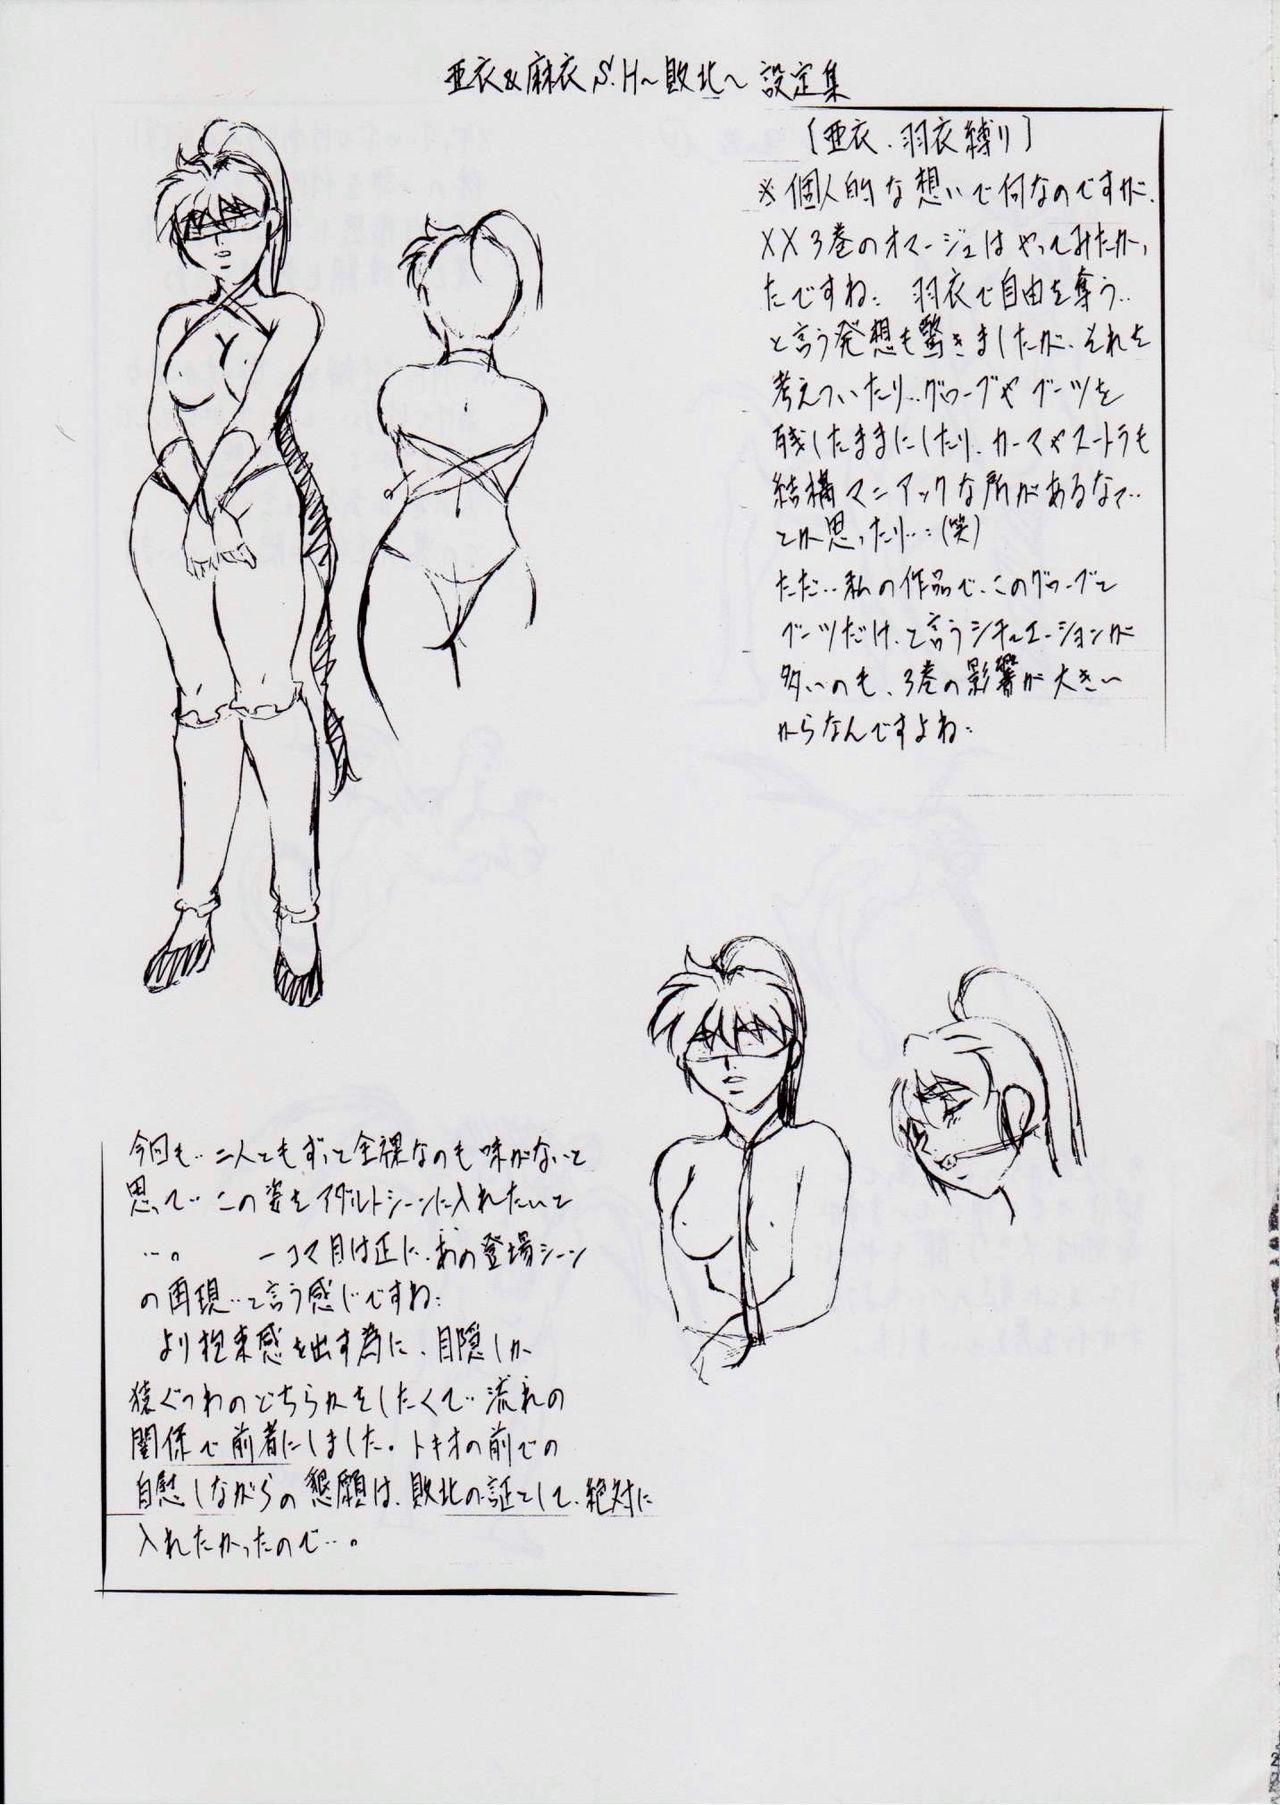 亜衣&麻衣 S.H～敗北～ 設定集
[亜衣、羽衣縛り]
※個人的な想いで何なのですが、
XX3巻のオマージュはやってみたかっ
たですね‥ 羽衣で自由を奪う‥
と言う発想も驚きましたが、それを
考えついたり‥グローブやブーツを
残したままにしたり、カーマやスートラも
結構マニアックな所があるなって‥
とか思ったり‥(笑)
ただ‥私の作品で、このグローブと
ブーツだけ、と言うシチュエーションが
多いのも、3巻の影響が大きい
からなんですよね‥
今回も‥二人ともずっと全裸なのも味がないと
思って‥この姿をアダルトシーンに入れたいと
‥。 一コマ目は正に、あの登場シーン
の再現‥と言う感じですね‥
より拘束感を出す為に、目隠しか
猿ぐつわのどちらかをしたくて‥流れの
関係で前者にしました。トキオの前での
自慰しながらの懇願は、敗北の証として、絶対に
入れたかったので‥。